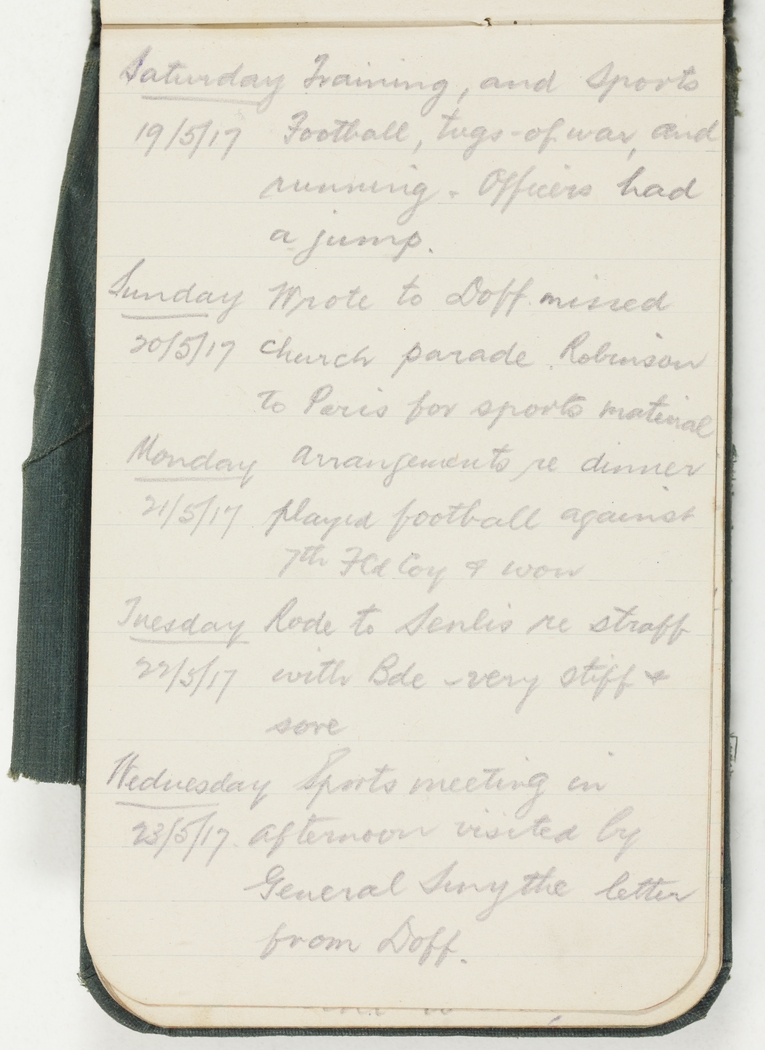 Saturday Training, and Sports
19/5/17 Football, tugs-of war, and
running. Officers had
a jump.
Sunday Wrote to Doff. missed
20/5/17 church parade. Robinson
to Paris for sports material
Monday arrangements re dinner
21/5/17 played football against
7th Fld Coy & won
Tuesday Rode to Senlis re straff
22/5/17 with Bde - very stiff &
sore
Wednesday Sports meeting in
23/5/17. afternoon visited by
General Smythe letter
from Doff.